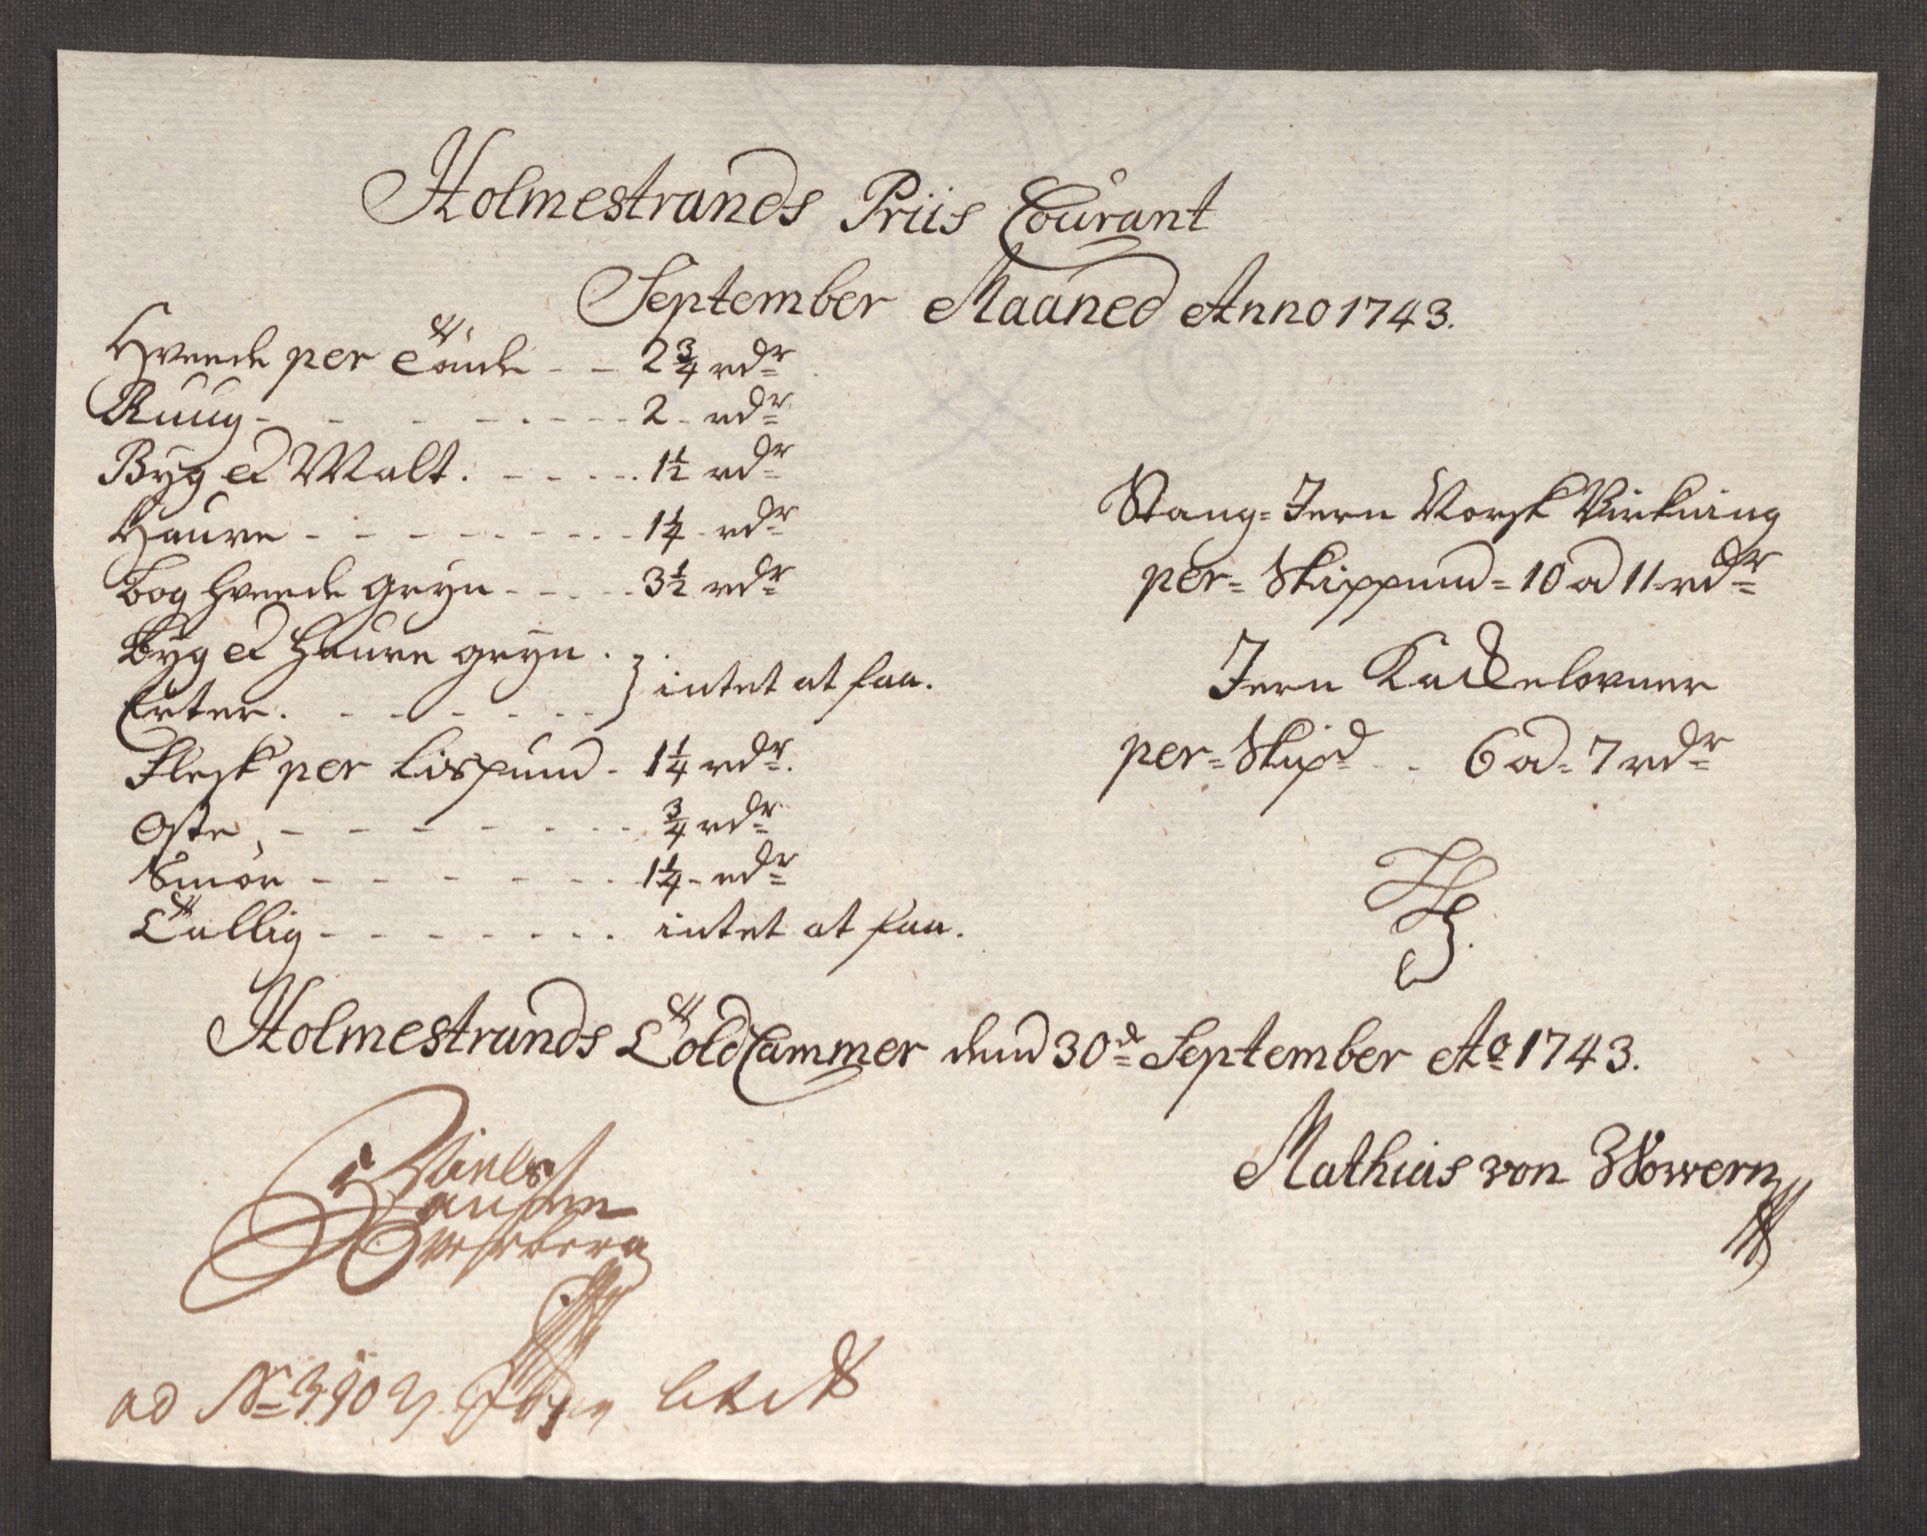 Holmestrands Priis Courant
September Maaned Anno 1743.
Hveede per Tönde - - 2 3/4 rdr
Ruug - - - - - - - 2 - rdr
Byg et Malt. - - - - 1 1/2 rdr
Haure - - - - - - - 1 1/4 - rdr
Bog Hveede Gryn - - - - 3 1/2 rdr
Byg et Haure gryn .
Erter. - - - - - - } intet at faa.
Flesk per Lispund - 1 1/4 rdr.
Oste, - - - - - - - 3/4 rdr
Smör - - - - - - 1 1/4 - rdr
Tallig - - - - - - - intet at faa.
Stang-Jern Norsk Virkning
per - Skippund - 10 a 11 - rdr
Jern Kackelovner
per - Skipd - - 6 a - 7 rdr
Holmestrands ToldCammer dend 30de September Ao 1743.
Niels
Hansen
Mathias von Wowern
ad No